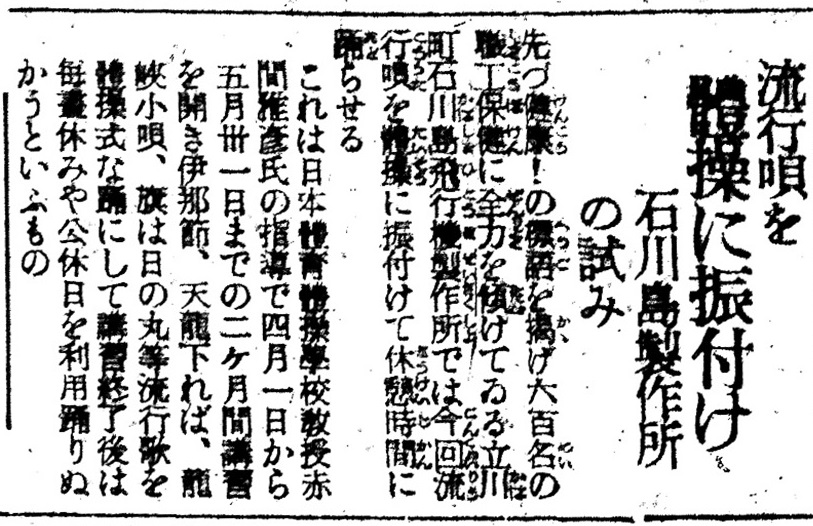 流行唄を
體操に振付け
石川島製作所
の試み
先づ健康!の標語を掲げ六百名の
職工保健に全力を傾けてゐる立川
町石川島飛行機製作所では今回流
行唄を體操に振付けて休憩時間に
踊らせる
これは日本體育體操學校教授赤
間雅彦氏の指導で四月一日から
五月卅一日までの二ケ月間講習
を開き伊那節、天龍下れば、龍
峽小唄、旗は日の丸等流行歌を
體操式な踊にして講習終了後は
毎晝休みや公休日を利用踊りぬ
かうといふもの